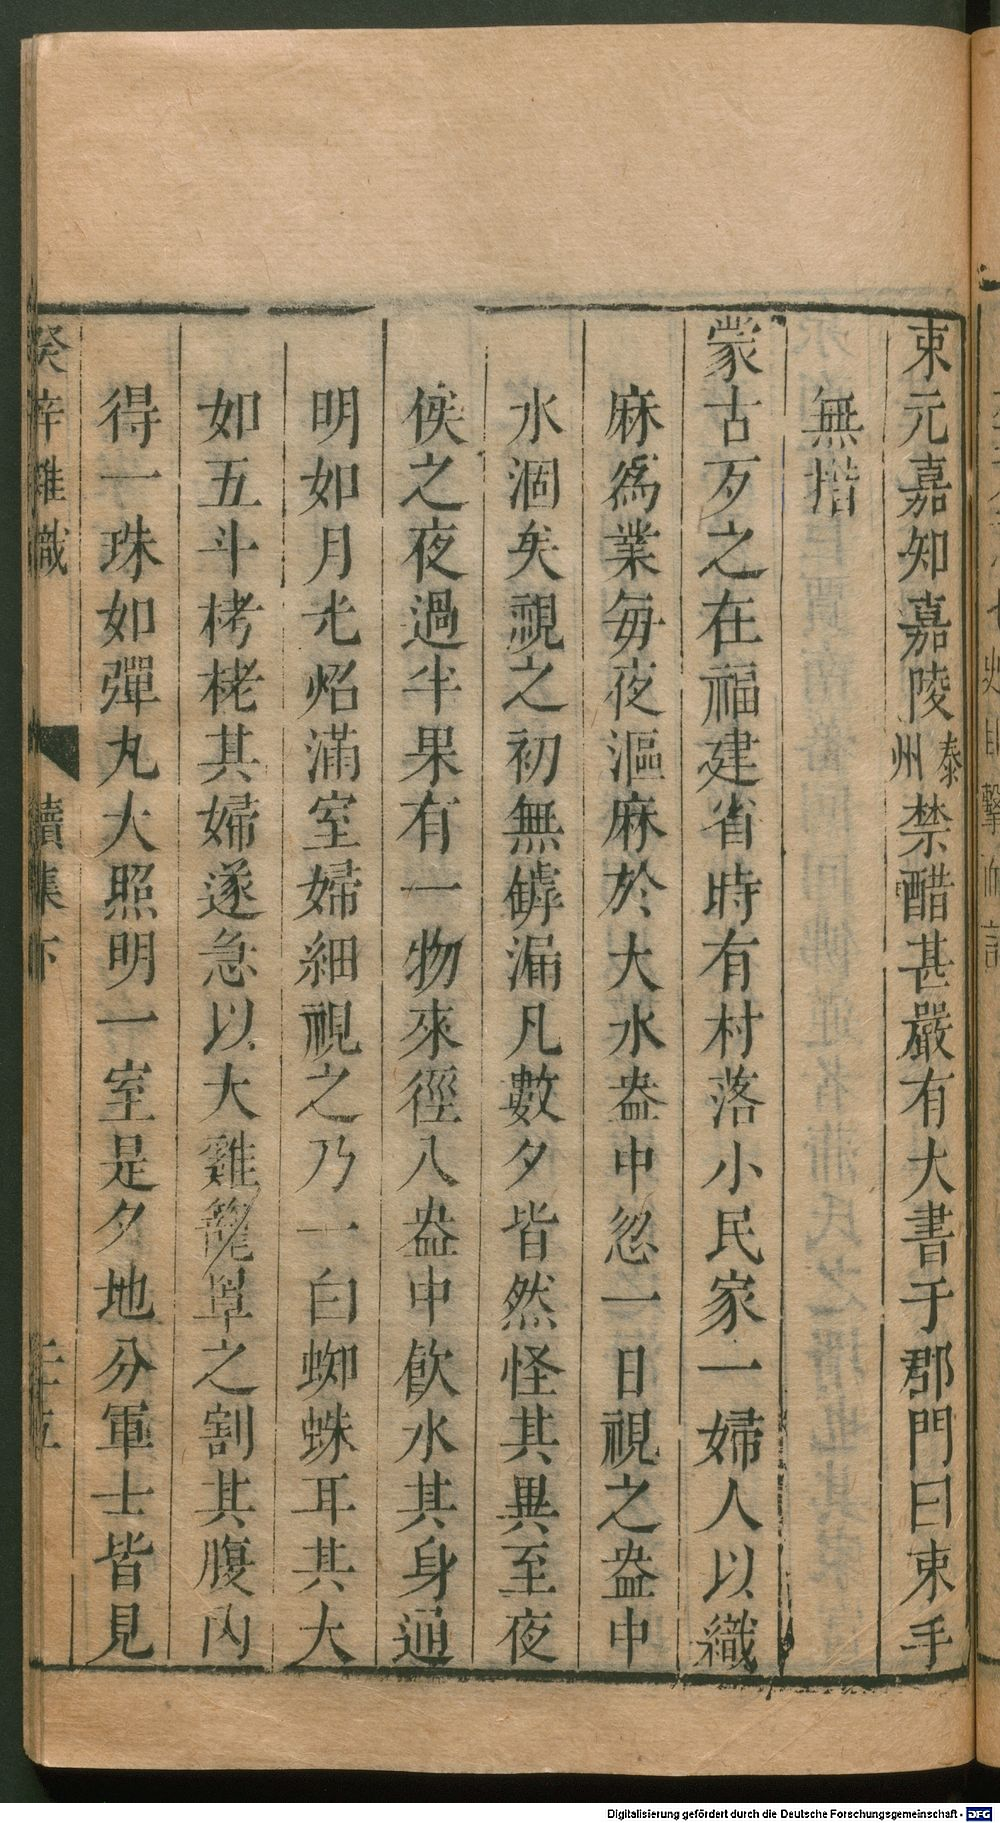 束元嘉知嘉陵泰州禁醋甚嚴有大書于郡門曰束手
無措
蒙古歹之在福建省時有村落小民家一婦人以織
麻為業每夜漚麻於大水盎中忽一日視之盎中
水涸矣視之初無罅漏凡數夕皆然怪其異至夜
俟之夜過半果有一物來徑入盎中飲水其身通
明如月光炤滿室婦細視之乃一白蜘蛛耳其大
如五斗栲栳其婦遂急以大雞籠罩之割其腹內
得一珠如彈丸大照明一室是夕地分軍士皆見
癸辛雜識 續集下 二十五
Digitalisierung gefördert durch die Deutsche Forschungsgemeinschaft - DFG